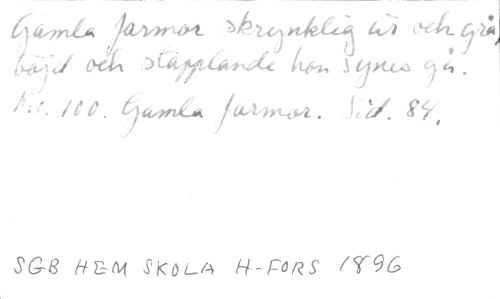 Gamla farmor skrynklig är och grå,
böjd och stapplande hon synes gå.
No. 100. Gamla farmor. Sid. 84.
SGB HEM SKOLA H-FORS 1896